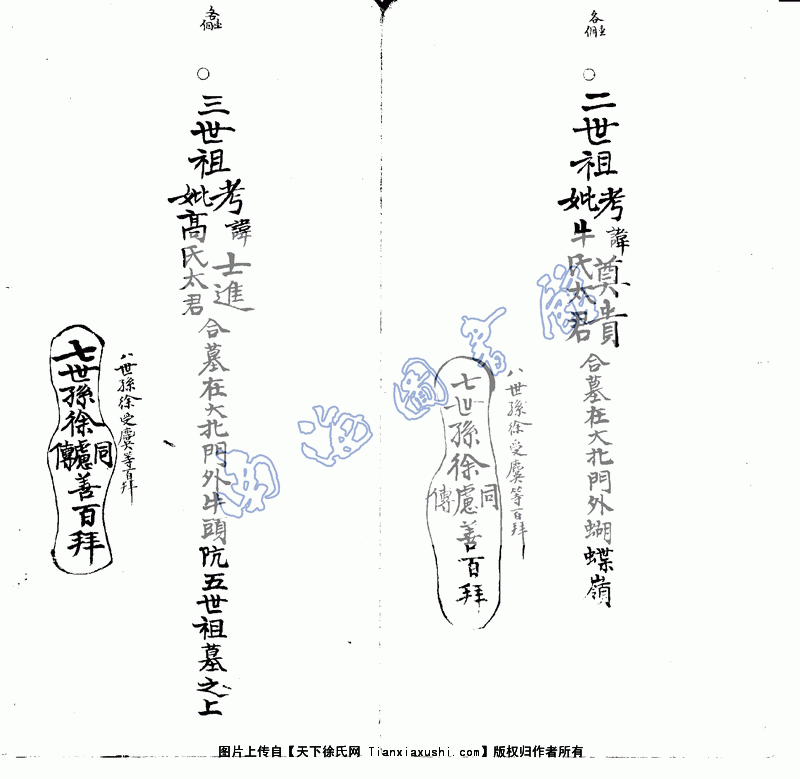 各位
○
二世祖
考諱奠貴
妣牛氏太君
合墓在大北門外蝴蝶嶺
八世孫徐受虞等百拜
七世孫徐
同
慮
傳
善百拜
各位
○
三世祖
考諱士進
妣高氏太君
合墓在大北門外牛頭阬五世祖墓之上
八世孫徐受虞等百拜
七世孫徐
同
慮
傳
善百拜
图片上传自【天下徐氏网 Tianxiaxushi.com】版权归作者所有